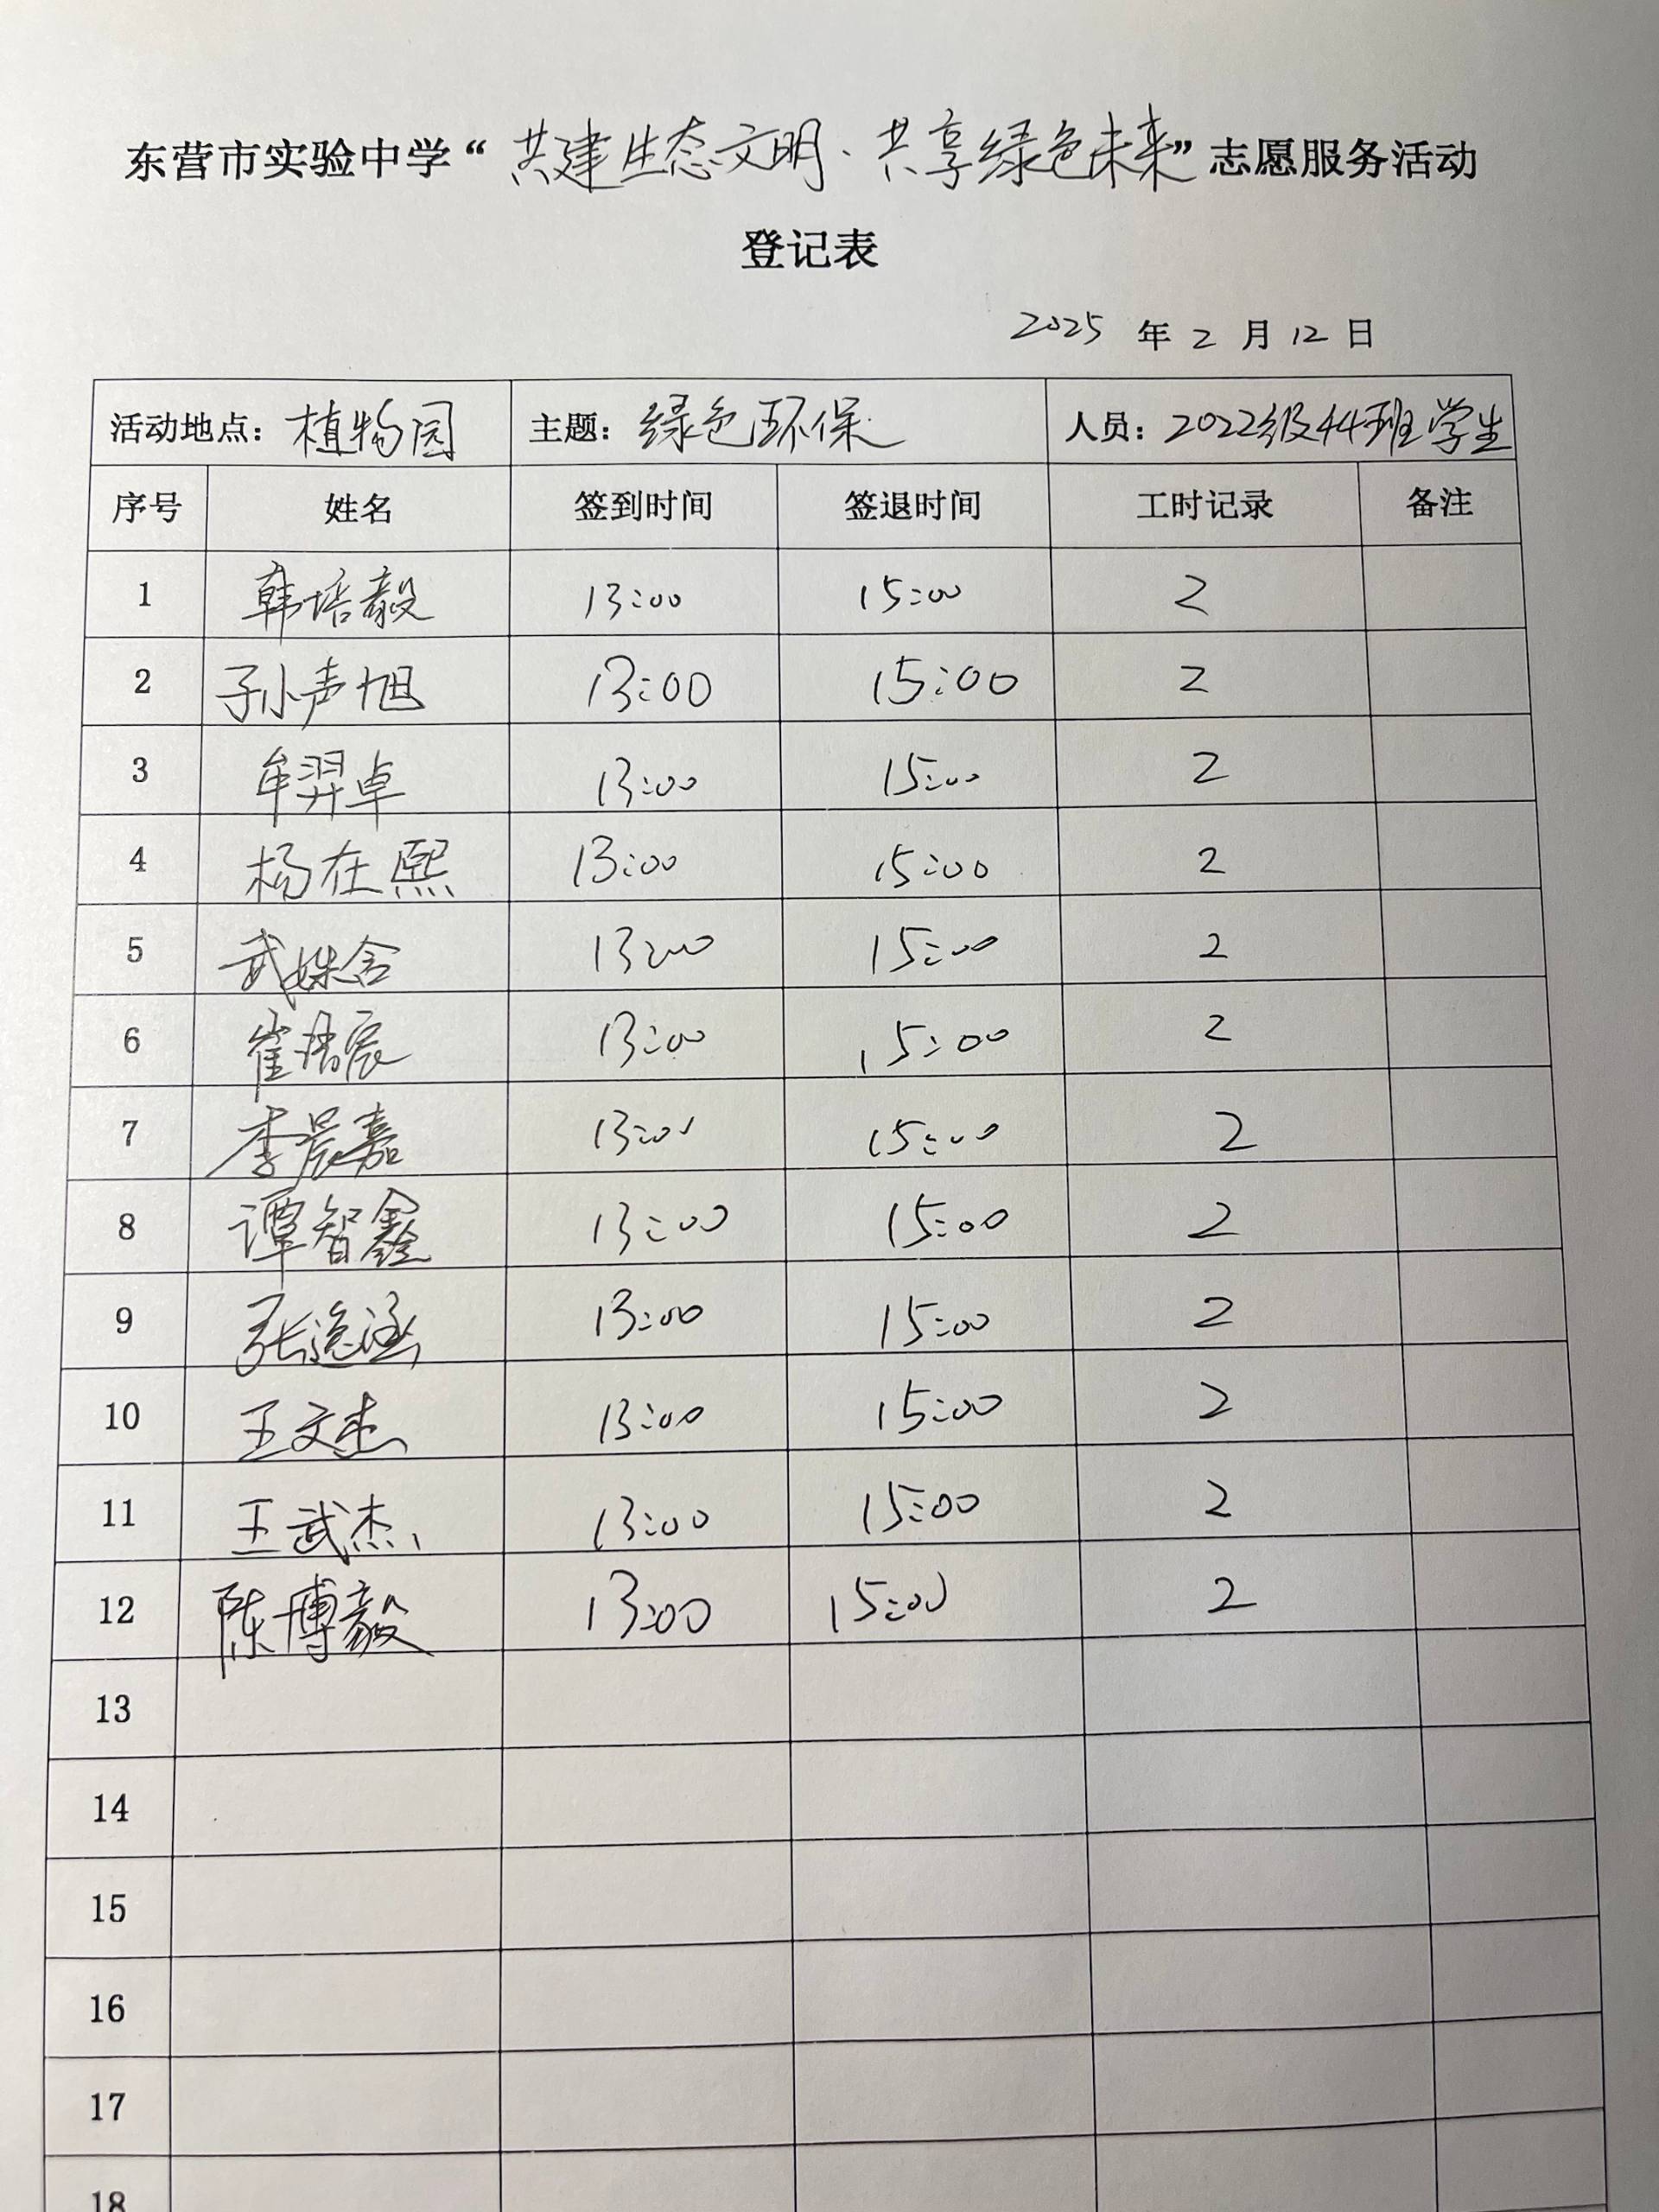 东营市实验中学“共建生态文明、共享绿色未来”志愿服务活动
登记表
2025 年 2 月 12 日
活动地点：植物园 主题：绿色环保 人员：2022级44班学生
序号 姓名 签到时间 签退时间 工时记录 备注
1 韩培毅 13:00 15:00 2
2 孙声旭 13:00 15:00 2
3 牟羿卓 13:00 15:00 2
4 杨在熙 13:00 15:00 2
5 武姝含 13:00 15:00 2
6 崔 辰 13:00 15:00 2
7 李晨嘉 13:00 15:00 2
8 谭智鑫 13:00 15:00 2
9 张逸涵 13:00 15:00 2
10 王文杰 13:00 15:00 2
11 王武杰 13:00 15:00 2
12 陈博毅 13:00 15:00 2
13
14
15
16
17
18